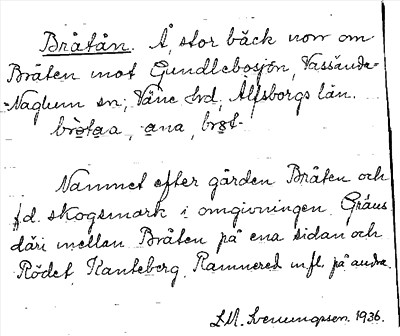 Bråtån. Å, stor bäck norr om
Bråten mot Gundlebosjön, Vassända-
-Naglum sn; Väne hd, Älfsborgs län.
bròtaa, ana, brøt-
Namnet efter gården Bråten och
f.d. skogsmark i omgivningen. Gräns
däri mellan Bråten på ena sidan och
Rödet, Kanteberg, Ramnered m fl. på andra.
L. M. Svenungsson. 1936.